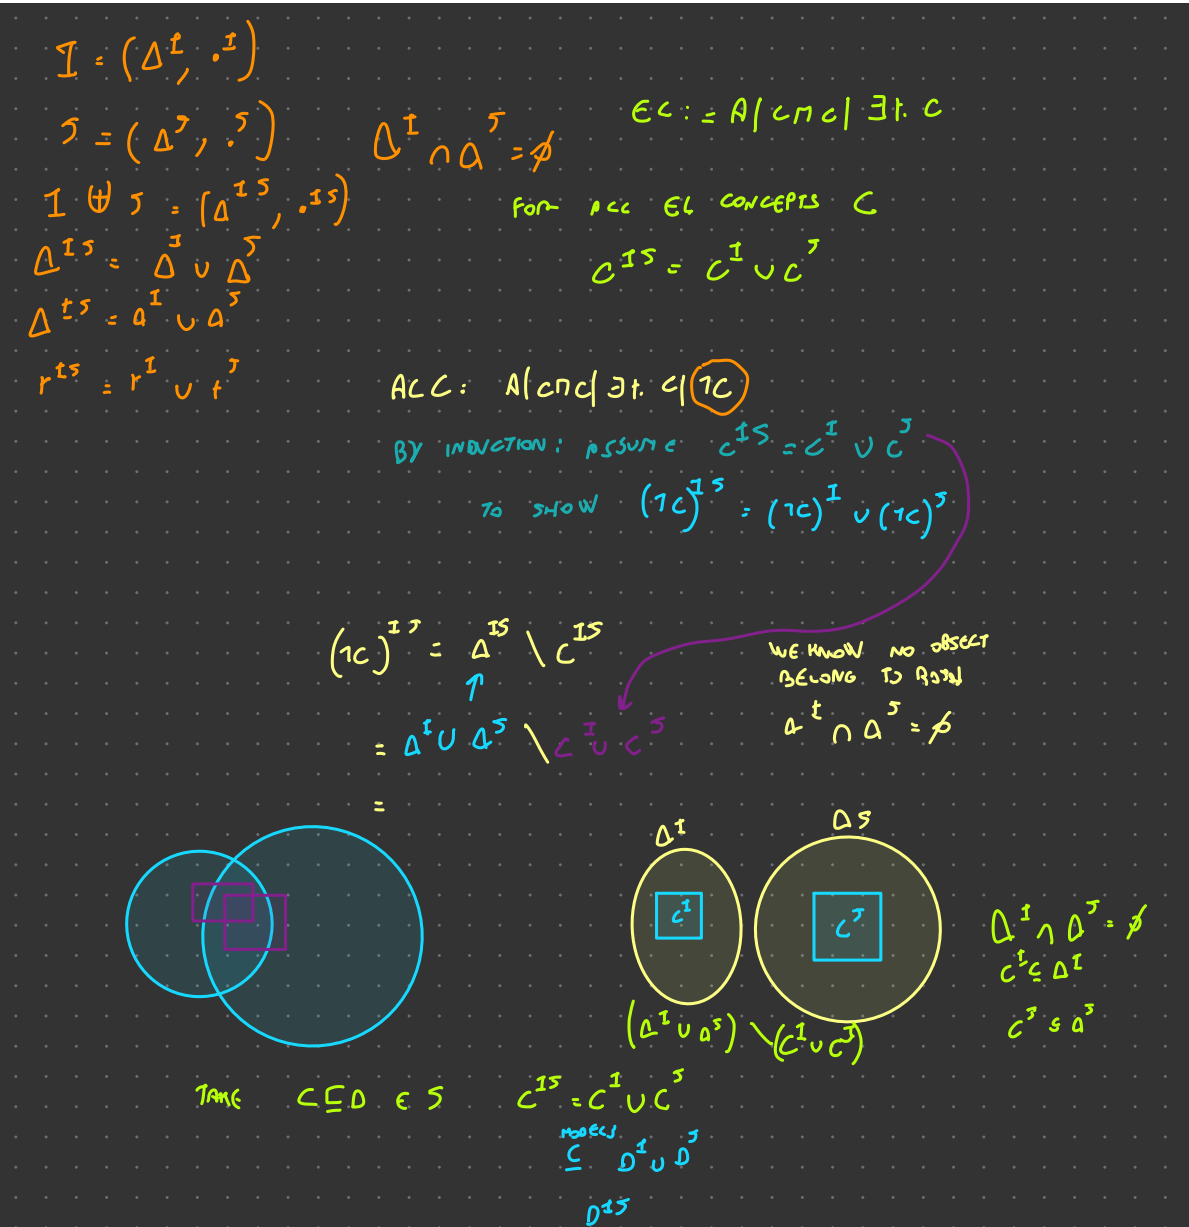 I = (Δ^I, ·^I)
J = (Δ^J, ·^J)
Δ^I ∩ Δ^J = ∅
I ⊎ J = (Δ^IJ, ·^IJ)
Δ^IJ = Δ^I ∪ Δ^J
A^IJ = A^I ∪ A^J
r^IJ = r^I ∪ r^J
EL := A | C ⊓ C | ∃r. C
FOR ALL EL CONCEPTS C
C^IJ = C^I ∪ C^J
ALC: A | C ⊓ C | ∃r. C | ¬C
BY INDUCTION: ASSUME C^IJ = C^I ∪ C^J
TO SHOW (¬C)^IJ = (¬C)^I ∪ (¬C)^J
(¬C)^IJ = Δ^IJ \ C^IJ
= Δ^I ∪ Δ^J \ C^I ∪ C^J
=
WE KNOW NO OBJECT
BELONG TO BOTH
Δ^I ∩ Δ^J = ∅
Δ^I
ΔJ
C^I
C^J
(Δ^I ∪ Δ^J) \ (C^I ∪ C^J)
Δ^I ∩ Δ^J = ∅
C^I ⊆ Δ^I
C^J ⊆ Δ^J
TAKE C ⊑ D ∈ S
C^IJ = C^I ∪ C^J
MODELS
⊆ D^I ∪ D^J
D^IJ